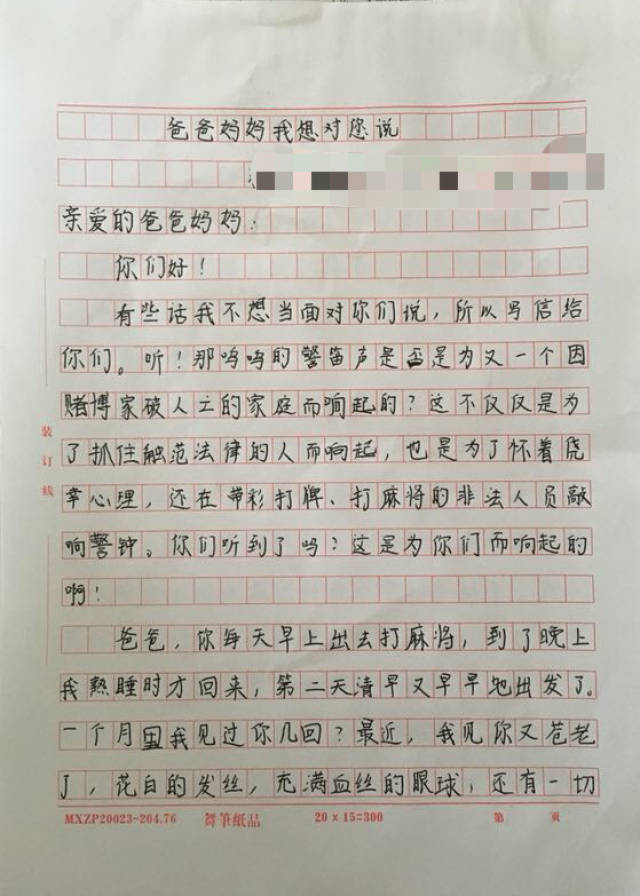 爸爸妈妈我想对您说
亲爱的爸爸妈妈：
你们好！
有些话我不想当面对你们说，所以写信给
你们。听！那呜呜的警笛声是否是为又一个因
赌博家破人亡的家庭而响起的？这不仅仅是为
了抓住触范法律的人而响起，也是为了怀着侥
幸心理，还在带彩打牌、打麻将的非法人员敲
响警钟。你们听到了吗？这是为你们而响起的
啊！
爸爸，你每天早上出去打麻将，到了晚上
我熟睡时才回来，第二天清早又早早地出发了。
一个月里我见过你几回？最近，我见你又苍老
了，花白的发丝，充满血丝的眼球，还有一切
装订线
MXZP20023-204.76 舞筆紙品 20×15=300 第 页